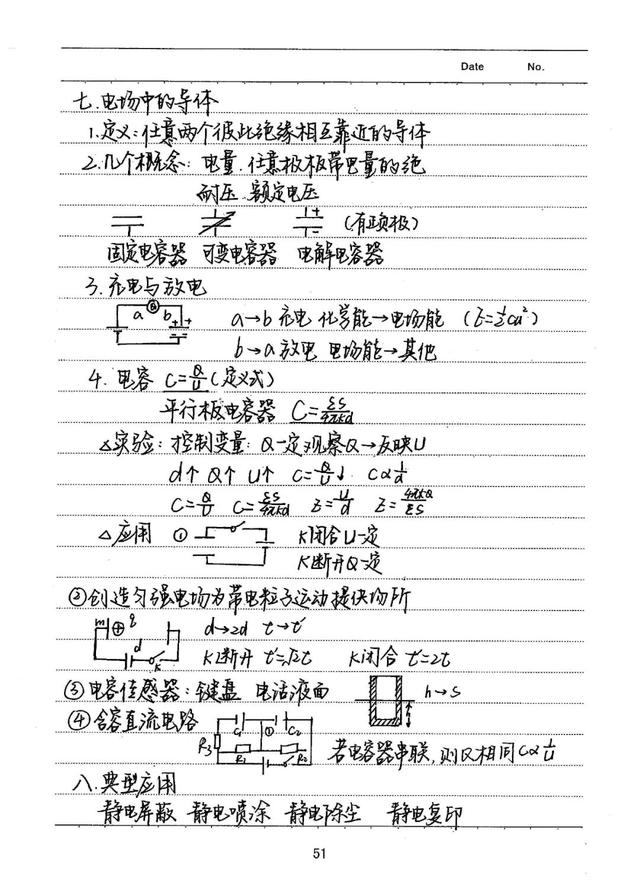 Date No.
七.电场中的导体
1.定义:任意两个彼此绝缘相互靠近的导体
2.几个概念:电量.任意极板带电量的绝
耐压.额定电压
(有正负极)
固定电容器 可变电容器 电解电容器
3.充电与放电
a b
a→b 充电 化学能→电场能 (E=½Cu²)
b→a 放电 电场能→其他
4.电容 C=Q/U(定义式)
平行板电容器 C=εS/4πkd
△实验:控制变量:Q一定观察Q→反映U
d↑ Q↑ U↑ C=Q/U↓ C∝1/d
C=Q/U C=εS/4πkd E=U/d E=4πkQ/εS
△应用 ① K闭合U一定
K断开Q一定
②创造匀强电场为带电粒子运动提供场所
m ⊕ q d→2d t→t'
d K K断开 t'=√2t K闭合 t'=2t
③电容传感器:键盘 电话液面 h→S
④含容直流电路 C₁ ① C₂
R₃ R₁ R₂ 若电容器串联,则Q相同C∝1/U
八.典型应用
静电屏蔽 静电喷涂 静电除尘 静电复印
51